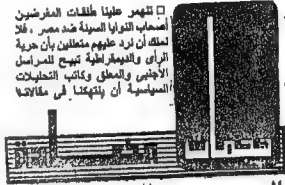 □ تنهمر علينا طلقات المغرضين
أصحاب النوايا السيئة ضد مصر ، فلا
نملك أن نرد عليهم متعللين بأن حرية
الرأى والديمقراطية تبيح للمراسل
الأجنبى والمعلق وكاتب التحليلات
السياسية أن ينتهكنا فى مقالاتها